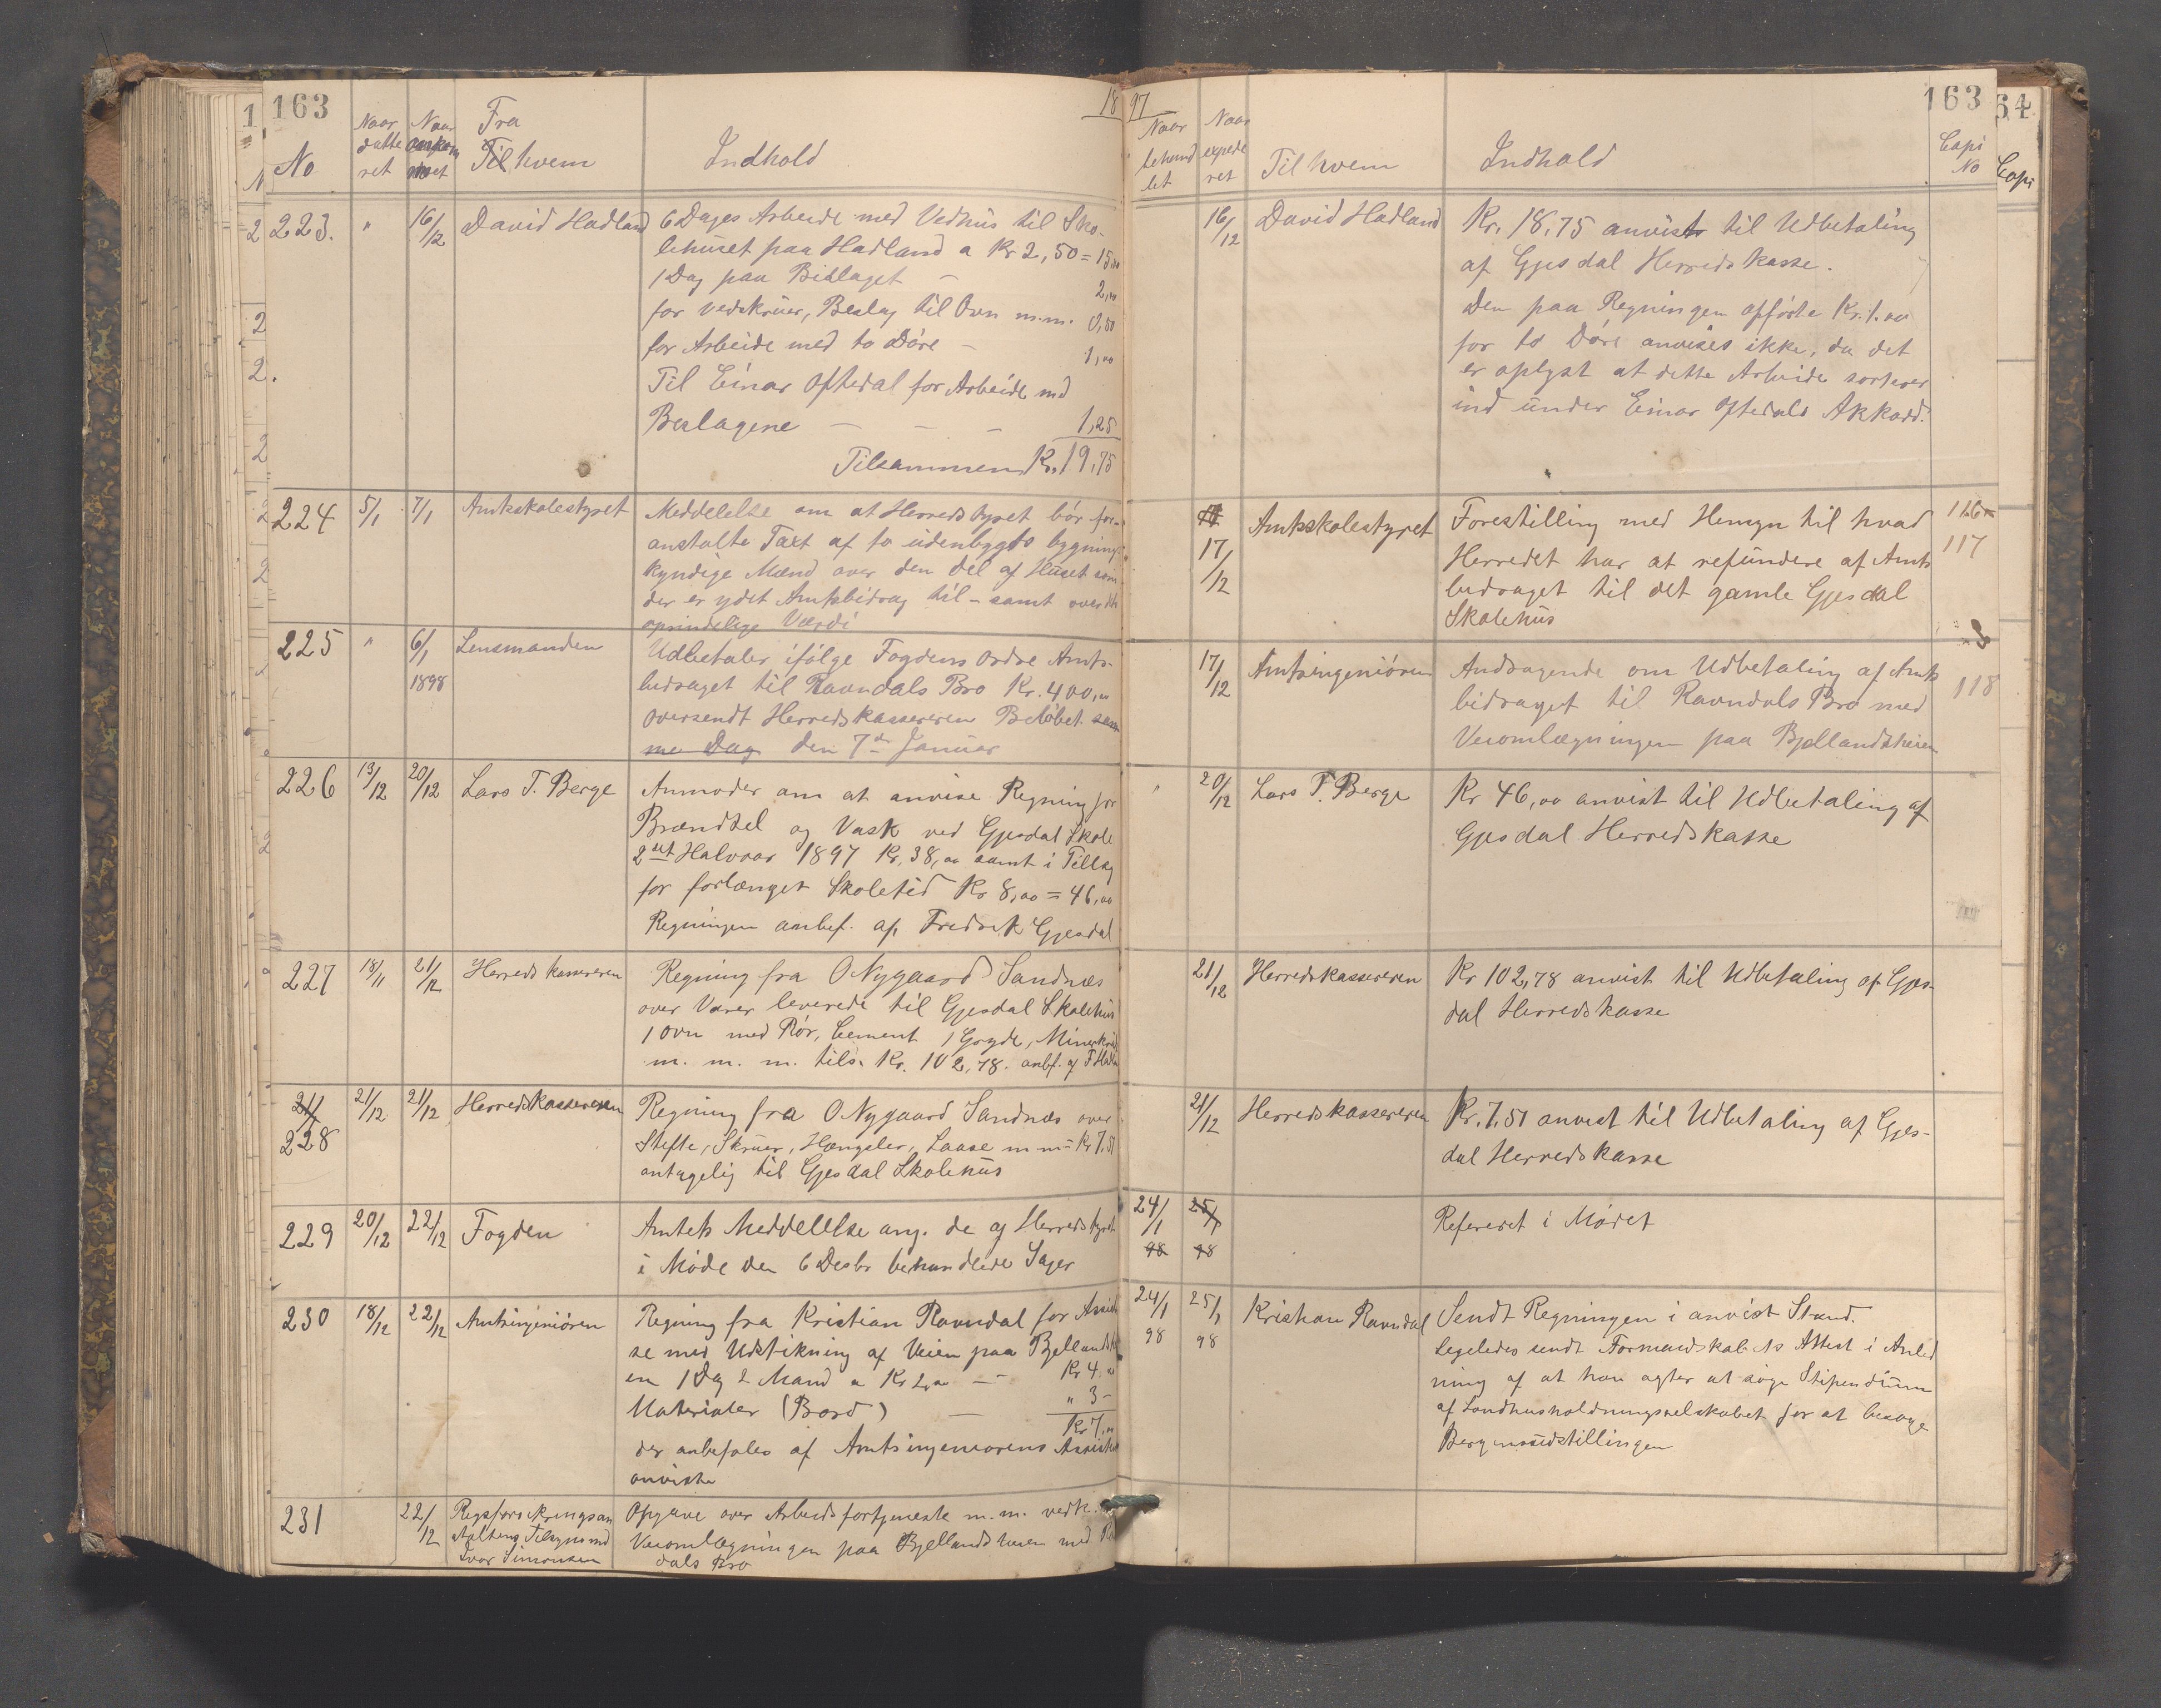 163
No
Naar datte ret
Naar ankom met
Fra
Til hvem
Indhold
18
223.
"
16/12
David Hadland
6 Dages Arbeide med Vedhus til Sko-
lehuset paa Hadland a Kr 2,50 = 15,00
1 Dag paa Bislaget — 2,00
for vedskruer, Beslag til Ovn m.m. 0,50
for Arbeide med to Döre — 1,00
Til Einar Oftedal for Arbeide med
Beslagene — — — 1,25
Tilsammen Kr. 19,75
224
5/1
7/1
Amtsskolestyret
Meddelelse om at Herredstyret bör for-
anstalte Taxt af to udenbygds bygnings
kyndige Mænd over den del af Huset som
der er ydet Amtsbidrag til - samt over det
oprindelige Værdi
225
"
6/1
1898
Lensmanden
Udbetaler ifölge Fogdens Ordre Amts-
bidraget til Ravndals Bro Kr. 400,00
oversendt Herredskassereren Belöbet sam
me Dag den 7de Januar
226
13/12
20/12
Lars T. Berge
Anmoder om at anvise Regning for
Brændsel og Vask ved Gjesdal Skole
2det Halvaar 1897 Kr. 38,00 samt i Tillæg
for forlænget Skoletid Kr 8,00 = 46,00
Regningen anbef. af Fredrik Gjesdal
227
18/11
21/12
Herredskassereren
Regning fra O Nygaard Sandnæs
over Varer leverede til Gjesdal Skolehus
1 Ovn med Rör, Cement 1 Gryde,
m. m. m. tils. Kr. 102,78. anbf. af
21/
228
21/12
21/12
Herredskassereren
Regning fra O Nygaard Sandnæs over
Stifte, Skruer, Hængsler, Laase m m = Kr 7,51
antagelig til Gjesdal Skolehus
229
20/12
22/12
Fogden
Amtets Meddelelse ang. de af Herredstyret
i Möde den 6 Desbr behandlede Sager
230
18/12
22/12
Amtsingeniören
Regning fra Kristian Ravndal for Assistan
se med Udstikning af Veien paa Bjellandshei
en 1 Dag 2 Mand a Kr 2,00 — Kr 4,00
Materialer (Bord) — " 3 -
Kr 7,00
der anbefales af Amtsingeniorens Assistent
anviste
231
22/12
Rigsforsikringsan
stalten Tilsynsmd
Ivar Simonsen
Opgave over Arbeidsfortjeneste m.m. vedk.
Veiomlægningen paa Bjellandsheien med Ravn
dals Bro
97
163
Naar behand let
Naar expede ret
Til hvem
Indhald
Copi No
16/12
David Hadland
Kr. 18,75 anvist til Udbetaling
af Gjesdal Herredskasse.
Den paa Regningen opförte Kr. 1.00
for to Döre anvises ikke, da det
er oplyst at dette Arbeide sorterer
ind under Einar Oftedals Akkord.
17/12
Amtsskolestyret
Forestilling med Hensyn til hvad
Herredet har at refundere af Amts
bidraget til det gamle Gjesdal
Skolehus
116
117
17/12
Amtsingeniören
Andragende om Udbetaling af Amts
bidraget til Ravndals Bro med
Veiomlægningen paa Bjellandsheien
118
"
20/12
Lars T. Berge
Kr 46,00 anvist til Udbetaling af
Gjesdal Herredskasse
21/12
Herredskassereren
Kr 102,78 anvist til Udbetaling af Gjes-
dal Herredskasse
21/12
Herredskassereren
Kr. 7,51 anvist til Udbetaling af Gjes-
dal Herredskasse
24/1
98
25/1
98
Refereret i Mödet
24/1
98
25/1
98
Kristian Ravndal
Sendt Regningen i anvist Stand.
Ligeledes sendt Formandskabets Attest i Anled
ning af at han agter at söge Stipendium
af Landhusholdningsselskabet for at besöge
Bergensudstillingen
64
Copi